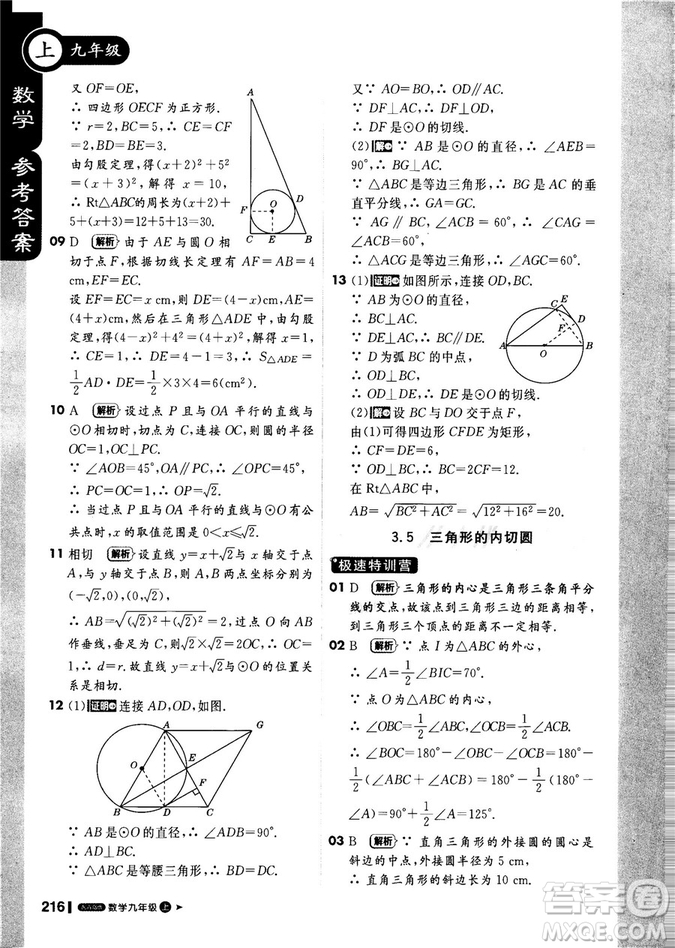 上 九年级
数学 参考答案
又 OF=OE,
∴ 四边形 OECF 为正方形.
∵ r=2, BC=5, ∴ CE=CF=
2, BD=BE=3.
由勾股定理, 得(x+2)²+5²=
(x+3)². 解得 x=10,
∴ Rt△ABC 的周长为(x+2)+
5+(x+3)=12+5+13=30.
A
F
O
D
C
E
B
09 D 解析 由于 AE 与圆 O 相
切于点 F, 根据切线长定理有 AF=AB=4
cm, EF=EC.
设 EF=EC=x cm, 则 DE=(4-x)cm, AE=
(4+x)cm, 然后在三角形△ADE 中, 由勾股
定理, 得(4-x)²+4²=(4+x)², 解得 x=1.
∴ CE=1. ∴ DE=4-1=3, ∴ S△ADE=
1/2 AD·DE=1/2×3×4=6(cm²).
10 A 解析 设过点 P 且与 OA 平行的直线与
⊙O 相切时, 切点为 C, 连接 OC, 则圆的半径
OC=1, OC⊥PC.
∵ ∠AOB=45°, OA∥PC,
∴ ∠OPC=45°, ∴ OP=√2.
∴ 当过点 P 且与 OA 平行的直线与 ⊙O 有公
共点时, x 的取值范围是 0<x≤√2.
11 相切 解析 设直线 y=x+√2与 x 轴交于点
A, 与 y 轴交于点 B. ∵ 直线 y=x+√2交于点
(-√2, 0), (0, √2),
∴ AB=√((√2)²+(√2)²)=2, 过点 O 向 AB
作垂线, 垂线段 r=√2×√2÷2=1,
∴ d=r. 故直线 y=x+√2与 ⊙O 的位置关
系是相切.
12 (1)证明 连接 AD, OD, 如图.
A
G
O
E
F
B
D
C
∵ AB 是 ⊙O 的直径, ∴ ∠ADB=90°.
∵ △ABC 是等腰三角形, ∴ BD=DC.
又∵ AO=BO, ∴ OD∥AC.
∵ DF⊥AC, ∴ DF⊥OD.
∴ DF 是⊙O 的切线.
(2)解 ∵ AB 是 ⊙O 的直径, ∴ ∠AEB=
90°.
∵ △ABC 是等边三角形, ∴ BG 是 AC 的垂
直平分线, ∴ GA=GC.
又∵ AG∥BC, ∴ ∠CAG=
∠ACB=60°, ∴ ∠AGC=60°.
13 (1)证明 如图所示, 连接 OD, BC.
∵ AB 为⊙O 的直径,
∴ BC⊥AC.
∵ DE⊥AC, ∴ BC∥DE.
∵ D 为弧 BC 的中点,
∴ OD⊥BC.
∴ OD⊥DE.
C
E
D
F
A
O
B
(2)解 设 BC 与 DO 交于点 F,
由(1)可得四边形 CFDE 为矩形,
∴ CF=DE=6,
∵ OD⊥BC, ∴ BC=2CF=12.
在 Rt△ABC 中,
AB=√(BC²+AC²)=√(12²+16²)=20.
3.5 三角形的内切圆
极速特训营
01 D 解析 三角形的内心是三角形三条角平分
线的交点, 故该点到三角形三边的距离相等,
到三角形三个顶点的距离不一定相等.
02 B 解析 ∵ 点 I 为△ABC 的外心,
∴ ∠A=1/2∠BIC=70°.
∵ 点 O 为△ABC 的内心,
∴ ∠OBC=1/2∠ABC, ∠OCB=1/2∠ACB,
∴ ∠BOC=180°-∠OBC-∠OCB=180°-
1/2(∠ABC+∠ACB)=180°-1/2(180°-
∠A)=90°+1/2∠A=125°.
03 B 解析 ∵ 直角三角形的外接圆的圆心是
斜边的中点, 外接圆半径为 5 cm,
∴ 直角三角形的斜边长为 10 cm.
216 数学九年级 上
答案圈